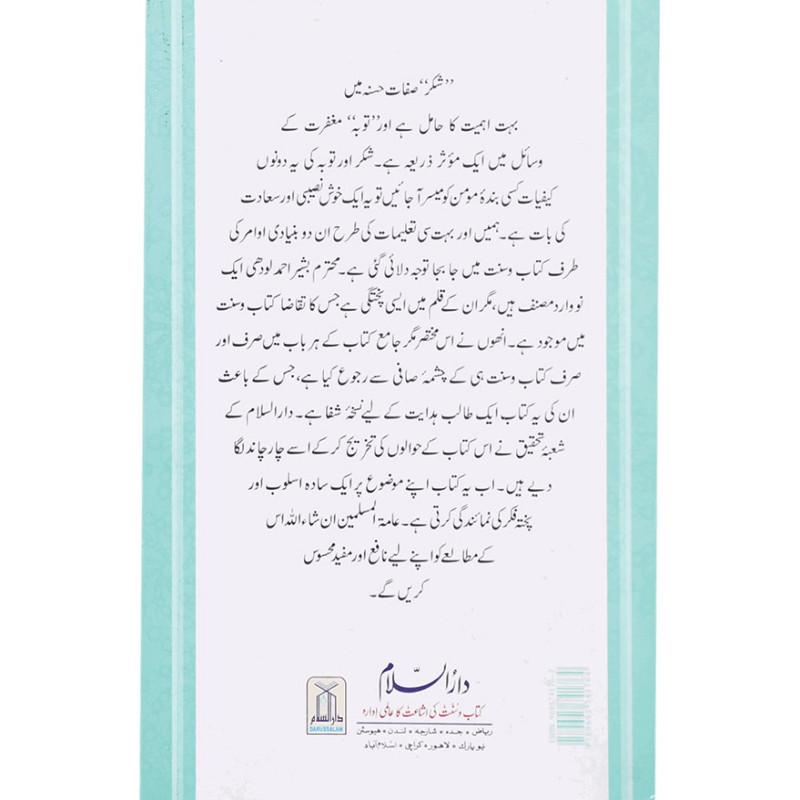 ”شکر“ صفات حسنہ میں
بہت اہمیت کا حامل ہے اور ”توبہ“ مغفرت کے
وسائل میں ایک مؤثر ذریعہ ہے۔ شکر اور توبہ کی یہ دونوں
کیفیات کسی بندۂ مومن کو میسر آ جائیں تو یہ ایک خوش نصیبی اور سعادت
کی بات ہے۔ ہمیں اور بہت سی تعلیمات کی طرح ان دو بنیادی اوامر کی
طرف کتاب وسنت میں جا بجا توجہ دلائی گئی ہے۔ محترم بشیر احمد لودھی ایک
نو وارد مصنف ہیں، مگر ان کے قلم میں ایسی پختگی ہے جس کا تقاضا کتاب وسنت
میں موجود ہے۔ انھوں نے اس مختصر مگر جامع کتاب کے ہر باب میں صرف اور
صرف کتاب وسنت ہی کے چشمۂ صافی سے رجوع کیا ہے، جس کے باعث
ان کی یہ کتاب ایک طالب ہدایت کے لیے نسخۂ شفا ہے۔ دارالسلام کے
شعبۂ تحقیق نے اس کتاب کے حوالوں کی تخریج کر کے اسے چار چاند لگا
دیے ہیں۔ اب یہ کتاب اپنے موضوع پر ایک سادہ اسلوب اور
پختہ فکر کی نمائندگی کرتی ہے۔ عامۃ المسلمین ان شاء اللہ اس
کے مطالعے کو اپنے لیے نافع اور مفید محسوس
کریں گے۔
دارالسلام
کتاب و سنت کی اشاعت کا عالمی ادارہ
ریاض • جدہ • شارجہ • لندن • ہیوسٹن
نیو یارک • لاہور • کراچی • اسلام آباد
دارالسلام
DARUSSALAM